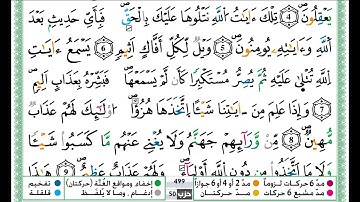 يَعْقِلُونَ ٥ تِلْكَ ءَايَٰتُ ٱللَّهِ نَتْلُوهَا عَلَيْكَ بِٱلْحَقِّ فَبِأَيِّ حَدِيثٍۭ بَعْدَ
ٱللَّهِ وَءَايَٰتِهِۦ يُؤْمِنُونَ ٦ وَيْلٌ لِّكُلِّ أَفَّاكٍ أَثِيمٍ ٧ يَسْمَعُ ءَايَٰتِ
ٱللَّهِ تُتْلَىٰ عَلَيْهِ ثُمَّ يُصِرُّ مُسْتَكْبِرًا كَأَن لَّمْ يَسْمَعْهَا فَبَشِّرْهُ بِعَذَابٍ أَلِيمٍ
وَإِذَا عَلِمَ مِنْ ءَايَٰتِنَا شَيْـًٔا ٱتَّخَذَهَا هُزُوًا أُو۟لَٰٓئِكَ لَهُمْ عَذَابٌ
مُّهِينٌ مِّن وَرَآئِهِمْ جَهَنَّمُ وَلَا يُغْنِي عَنْهُم مَّا كَسَبُوا۟ شَيْـًٔا
وَلَا مَا ٱتَّخَذُوا۟ مِن دُونِ ٱللَّهِ أَوْلِيَآءَ وَلَهُمْ عَذَابٌ عَظِيمٌ هَٰذَا
مدّ 6 حركات لزوماً مدّ 2 أو 4 أو 6 جوازاً إخفاء ومواقع الغُنَّة (حركتان) تفخيم
مدّ مشبع 6 حركات مدّ حركتان إدغام، وما لا يُلفَظ قلقلة
499
حزب 50